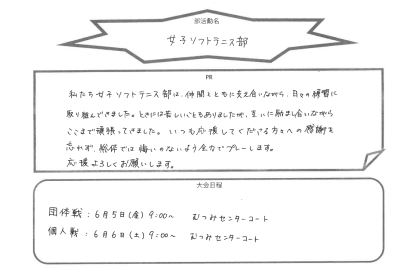 部活動名
女子ソフトテニス部
PR
私たち女子ソフトテニス部は、仲間とともに支え合いながら、日々の練習に
取り組んできました。ときには苦しいこともありましたが、互いに励まし合いながら
ここまで頑張ってきました。いつも応援してくださる方々への感謝を
忘れず、総体では悔いのないよう全力でプレーします。
応援よろしくお願いします。
大会日程
団体戦：6月5日(金) 9:00～ むつみセンターコート
個人戦：6月6日(土) 9:00～ むつみセンターコート